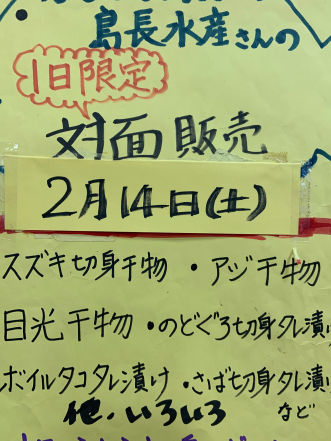 島長水産さんの
1日限定
対面販売
2月14日(土)
スズキ切身干物・アジ干物
目光干物・のどぐろ切身タレ漬け
ボイルタコタレ漬け・さば切身タレ漬け
他・いろいろ など